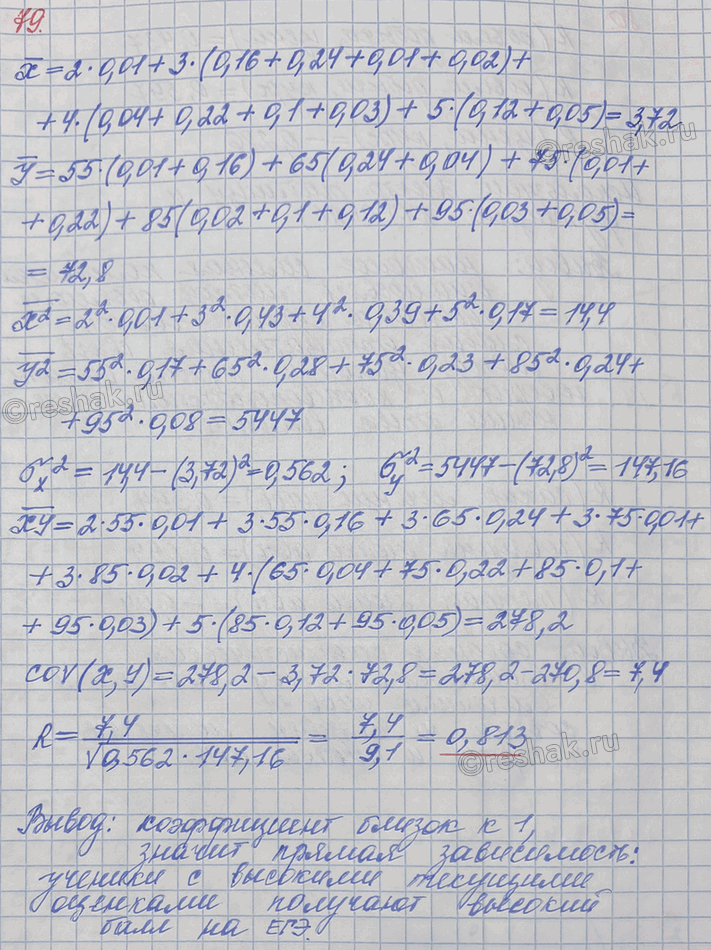 79.
x̅ = 2·0,01+3·(0,16+0,24+0,01+0,02)+
+4·(0,04+0,22+0,1+0,03)+5·(0,12+0,05)=3,72
y̅ = 55·(0,01+0,16)+65(0,24+0,04)+75(0,01+
+0,22)+85(0,02+0,1+0,12)+95·(0,03+0,05)=
= 72,8
x̅² = 2²·0,01+3²·0,43+4²·0,39+5²·0,17=14,4
y̅² = 55²·0,17+65²·0,28+75²·0,23+85²·0,24+
+95²·0,08=5447
σₓ² = 14,4-(3,72)²=0,562; σᵧ²=5447-(72,8)²=147,16
x̅y̅ = 2·55·0,01+3·55·0,16+3·65·0,24+3·75·0,01+
+3·85·0,02+4·(65·0,04+75·0,22+85·0,1+
+95·0,03)+5·(85·0,12+95·0,05)=278,2
cov(x,y)=278,2-3,72·72,8=278,2-270,8=7,4
R = 7,4/√0,562·147,16 = 7,4/9,1 = 0,813
Вывод: коэффициент близок к 1,
значит прямая зависимость:
ученики с высокими текущими
оценками получают высокий
балл на ЕГЭ.
©reshak.ru
©reshak.ru
©reshak.ru